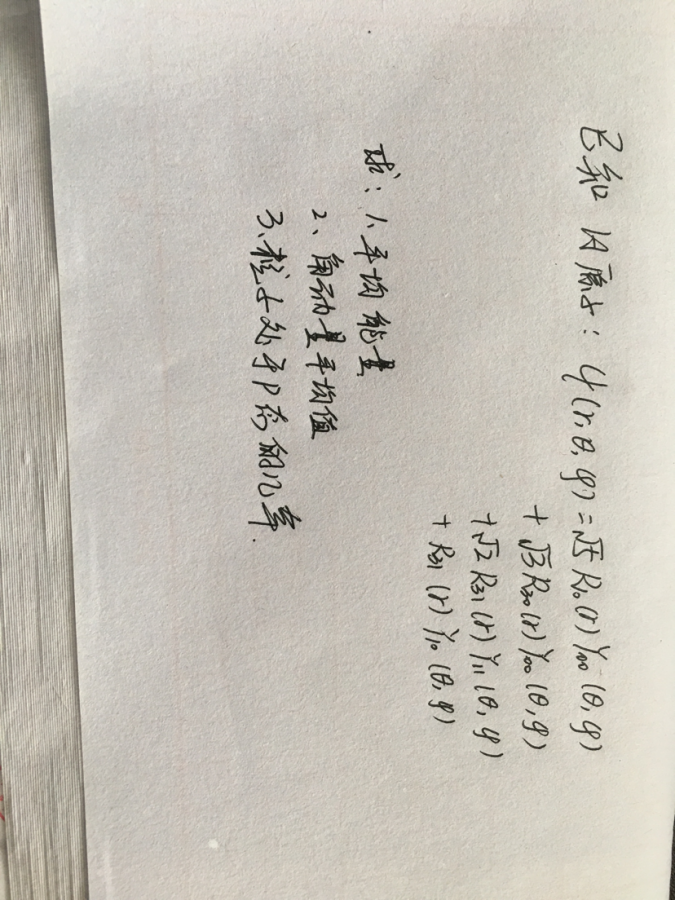 已知 H原子: ψ(r,θ,φ) = √5 R₁₀(r) Y₀₀(θ,φ)
+ √3 R₃₀(r) Y₀₀(θ,φ)
+ √2 R₃₁(r) Y₁₁(θ,φ)
+ R₃₁(r) Y₁₀(θ,φ)
求: 1、平均能量
2、角动量平均值
3、粒子处于P态的几率.